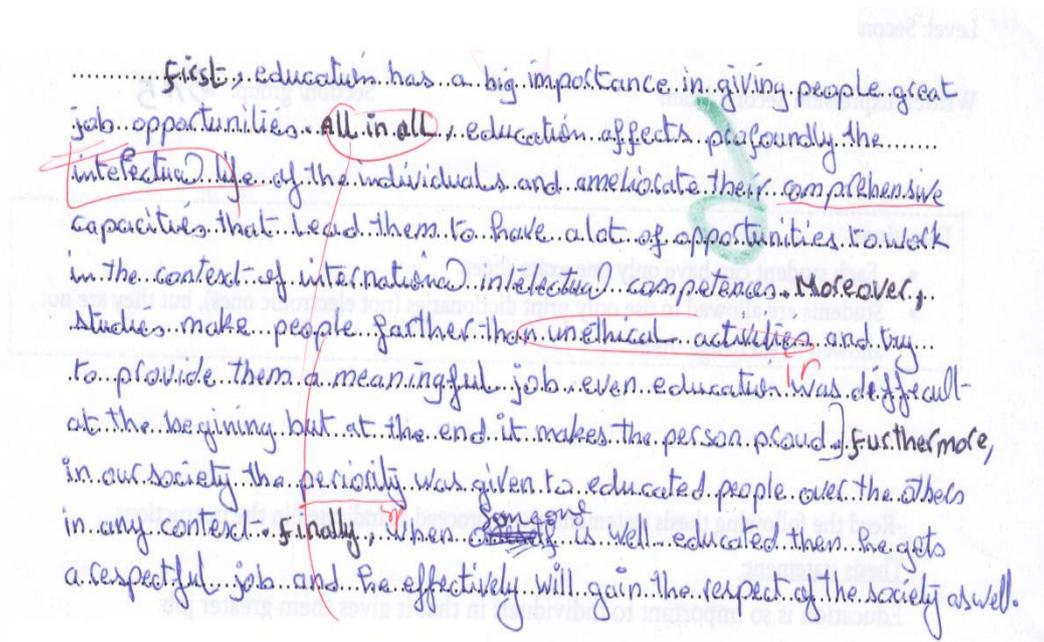 .......... First, education has a big importance in giving people great
job opportunities. All in all, education affects profoundly the.......
intelectual life of the individuals and ameliorate their comprehensive
capacities that lead them to have a lot of opportunities to work
in the contexd of international intelectual competences. Moreover,
studies make people farther than unethical activities and try
to provide them a meaningful job even education was difficult
at the begining but at the end it makes the person proud.] Furthermore,
in our society the periority was given to educated people over the others
in any contexd. Finally, when someone is well educated then he gets
a respectful job and he effectively will gain the respect of the society as well.